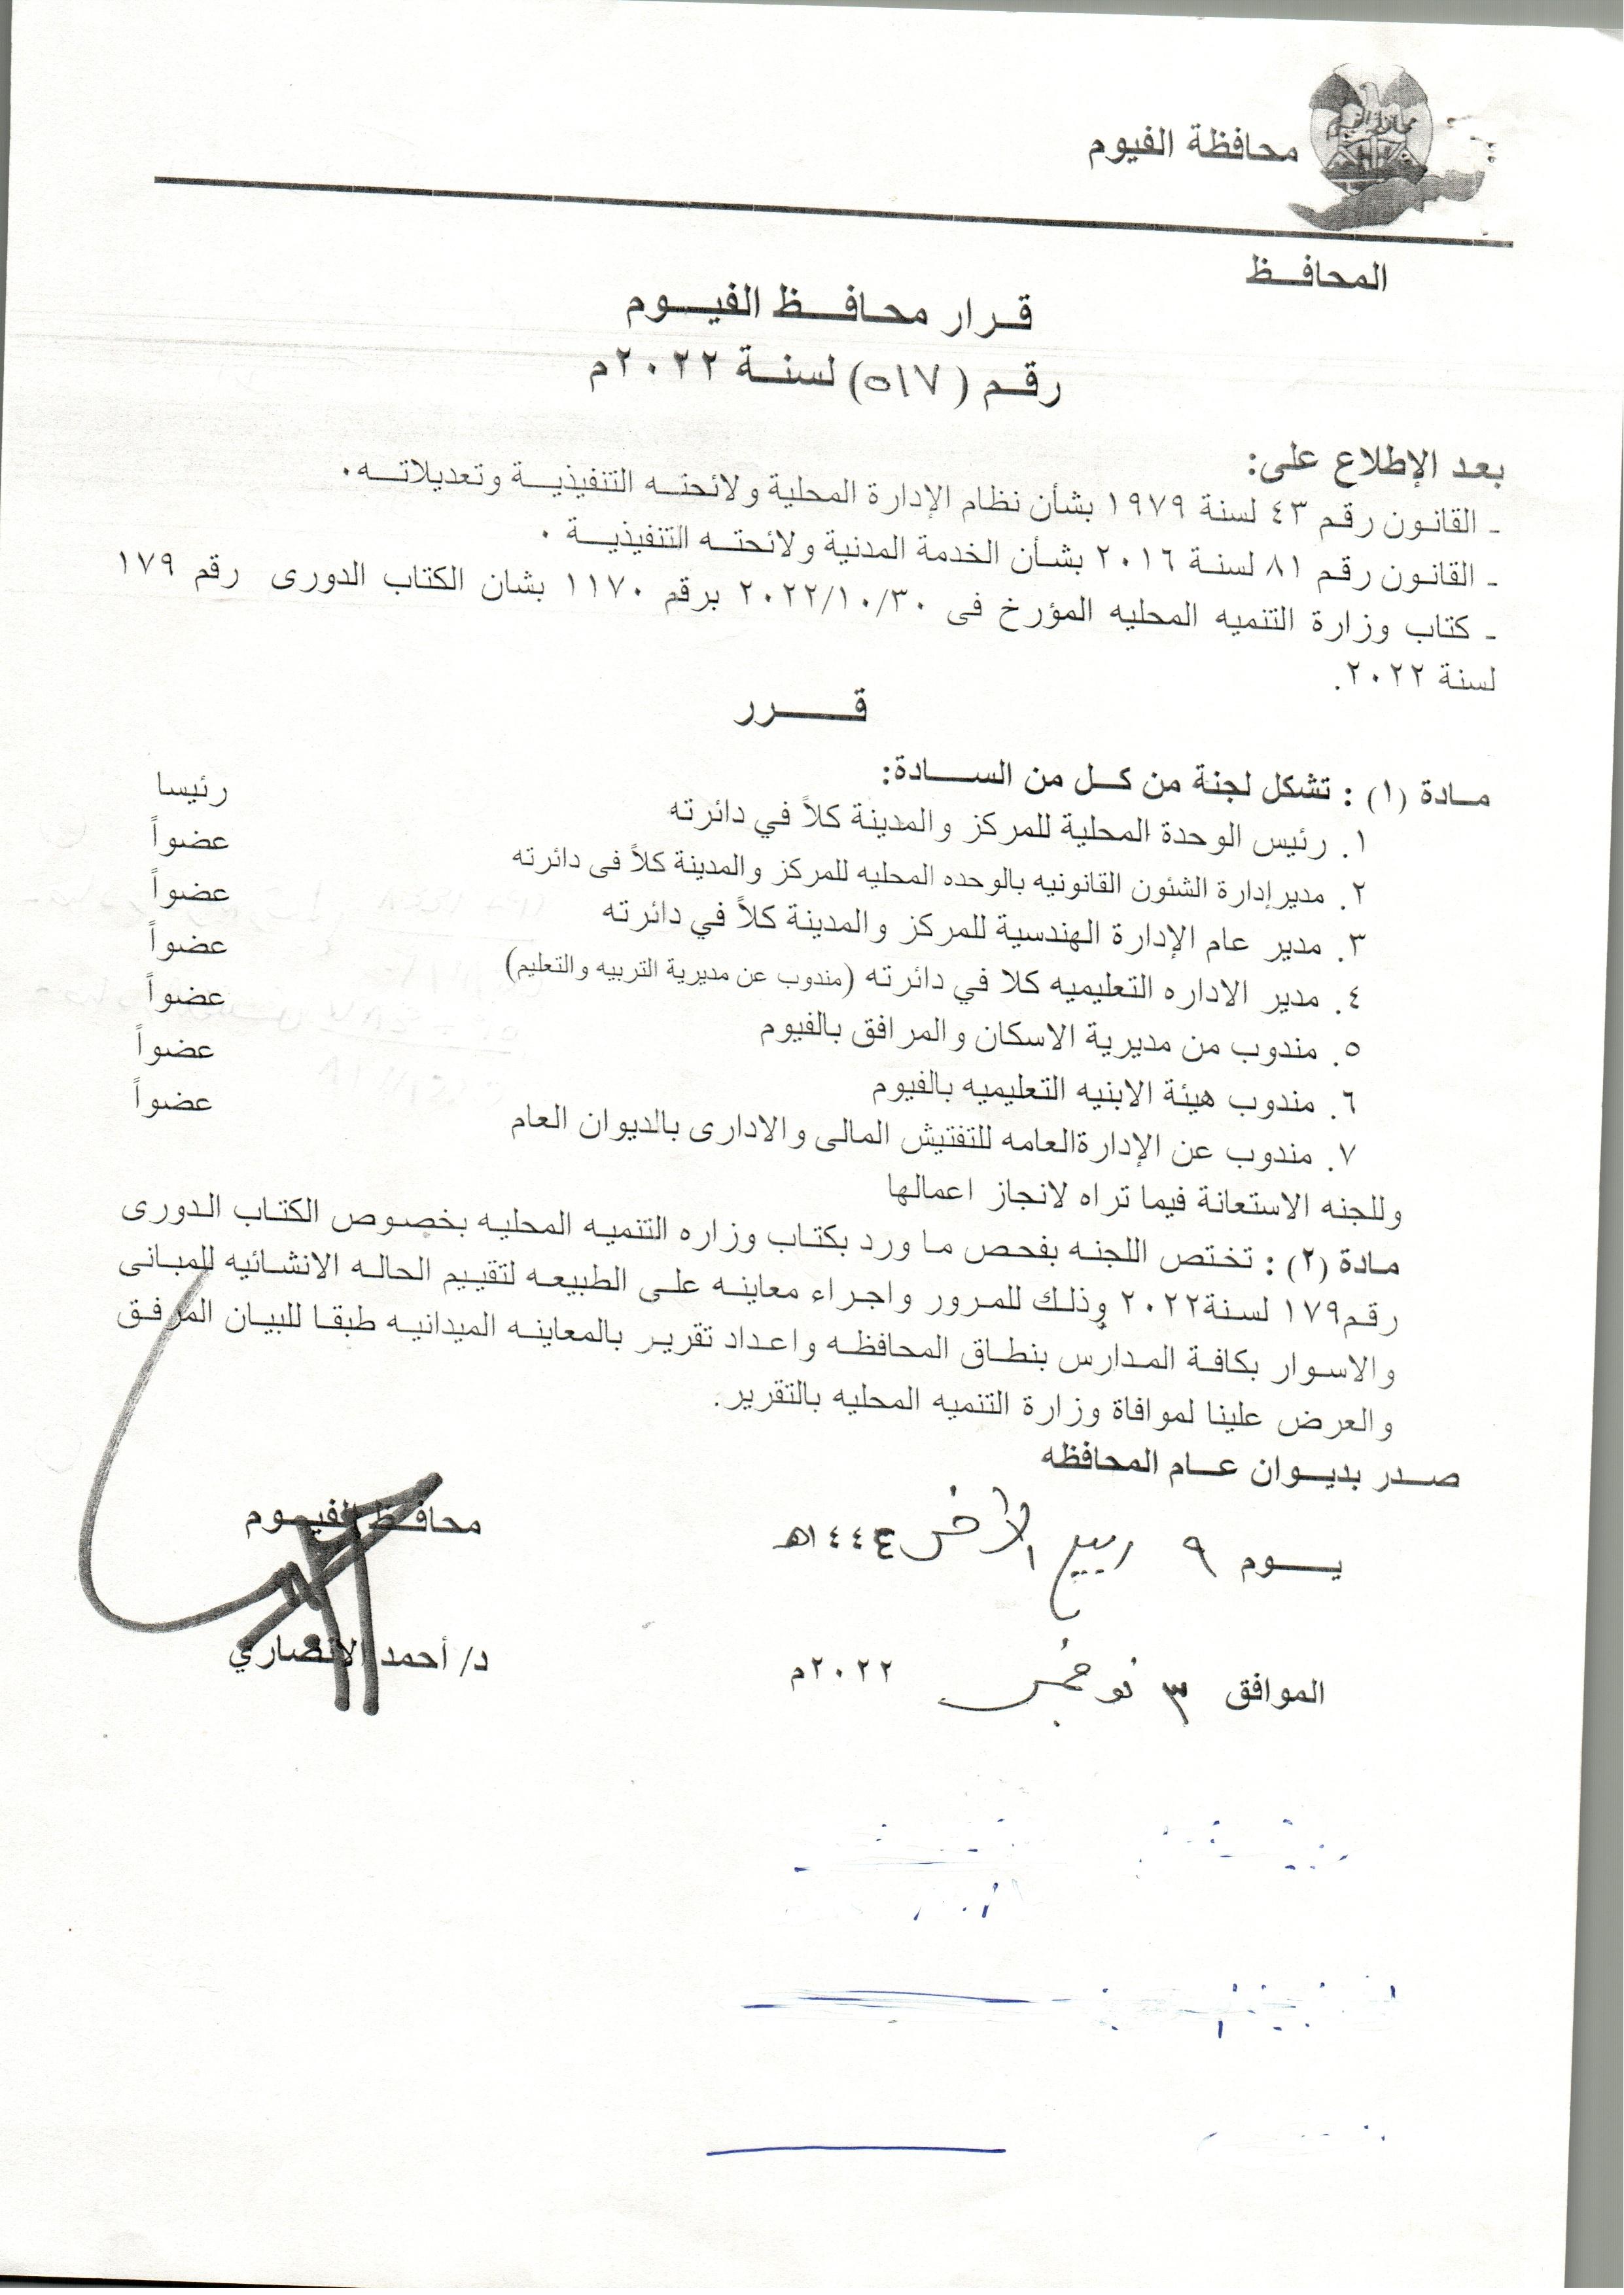 محافظة الفيوم
المحافــظ
قــرار محـافــظ الفيــوم
رقــم (٥١٧) لسنــة ٢٠٢٢م
بعد الإطلاع على:
ـ القانون رقم ٤٣ لسنة ١٩٧٩ بشأن نظام الإدارة المحلية ولائحتــه التنفيذيــة وتعديلاتــه.
ـ القانون رقم ٨١ لسنة ٢٠١٦ بشأن الخدمة المدنية ولائحتــه التنفيذيــة .
ـ كتاب وزارة التنميه المحليه المؤرخ فى ٢٠٢٢/١٠/٣٠ برقم ١١٧٠ بشان الكتاب الدورى رقم ١٧٩
لسنة ٢٠٢٢.
قـــــرر
مــادة (١) : تشكل لجنة من كــل من الســـادة:
١. رئيس الوحدة المحلية للمركز والمدينة كلاً في دائرته رئيسا
٢. مديرإدارة الشئون القانونيه بالوحده المحليه للمركز والمدينة كلاً فى دائرته عضواً
٣. مدير عام الإدارة الهندسية للمركز والمدينة كلاً في دائرته عضواً
٤. مدير الاداره التعليميه كلا في دائرته (مندوب عن مديرية التربيه والتعليم) عضواً
٥. مندوب من مديرية الاسكان والمرافق بالفيوم عضواً
٦. مندوب هيئة الابنيه التعليميه بالفيوم عضواً
٧. مندوب عن الإدارةالعامه للتفتيش المالى والادارى بالديوان العام عضواً
وللجنه الاستعانة فيما تراه لانجاز اعمالها
مـادة (٢) : تختص اللجنـه بفحص مـا ورد بكتـاب وزاره التنميـه المحليـه بخصـوص الكتـاب الـدورى
رقـم١٧٩ لسـنة٢٠٢٢ وذلـك للمـرور واجـراء معاينـه علـى الطبيعـه لتقيـيم الحالـه الانشـائيه للمبـانى
والاسـوار بكافـة المـدارس بنطـاق المحافظـه واعـداد تقريـر بالمعاينـه الميدانيـه طبقـا للبيـان المرفـق
والعرض علينا لموافاة وزارة التنميه المحليه بالتقرير.
صــدر بديــوان عــام المحافظه
يــــوم ٩ ربيع الآخر ١٤٤٤هـ
محافــظ الفيــوم
الموافق ٣ نوفمبر ٢٠٢٢م
د/ أحمد الانصاري